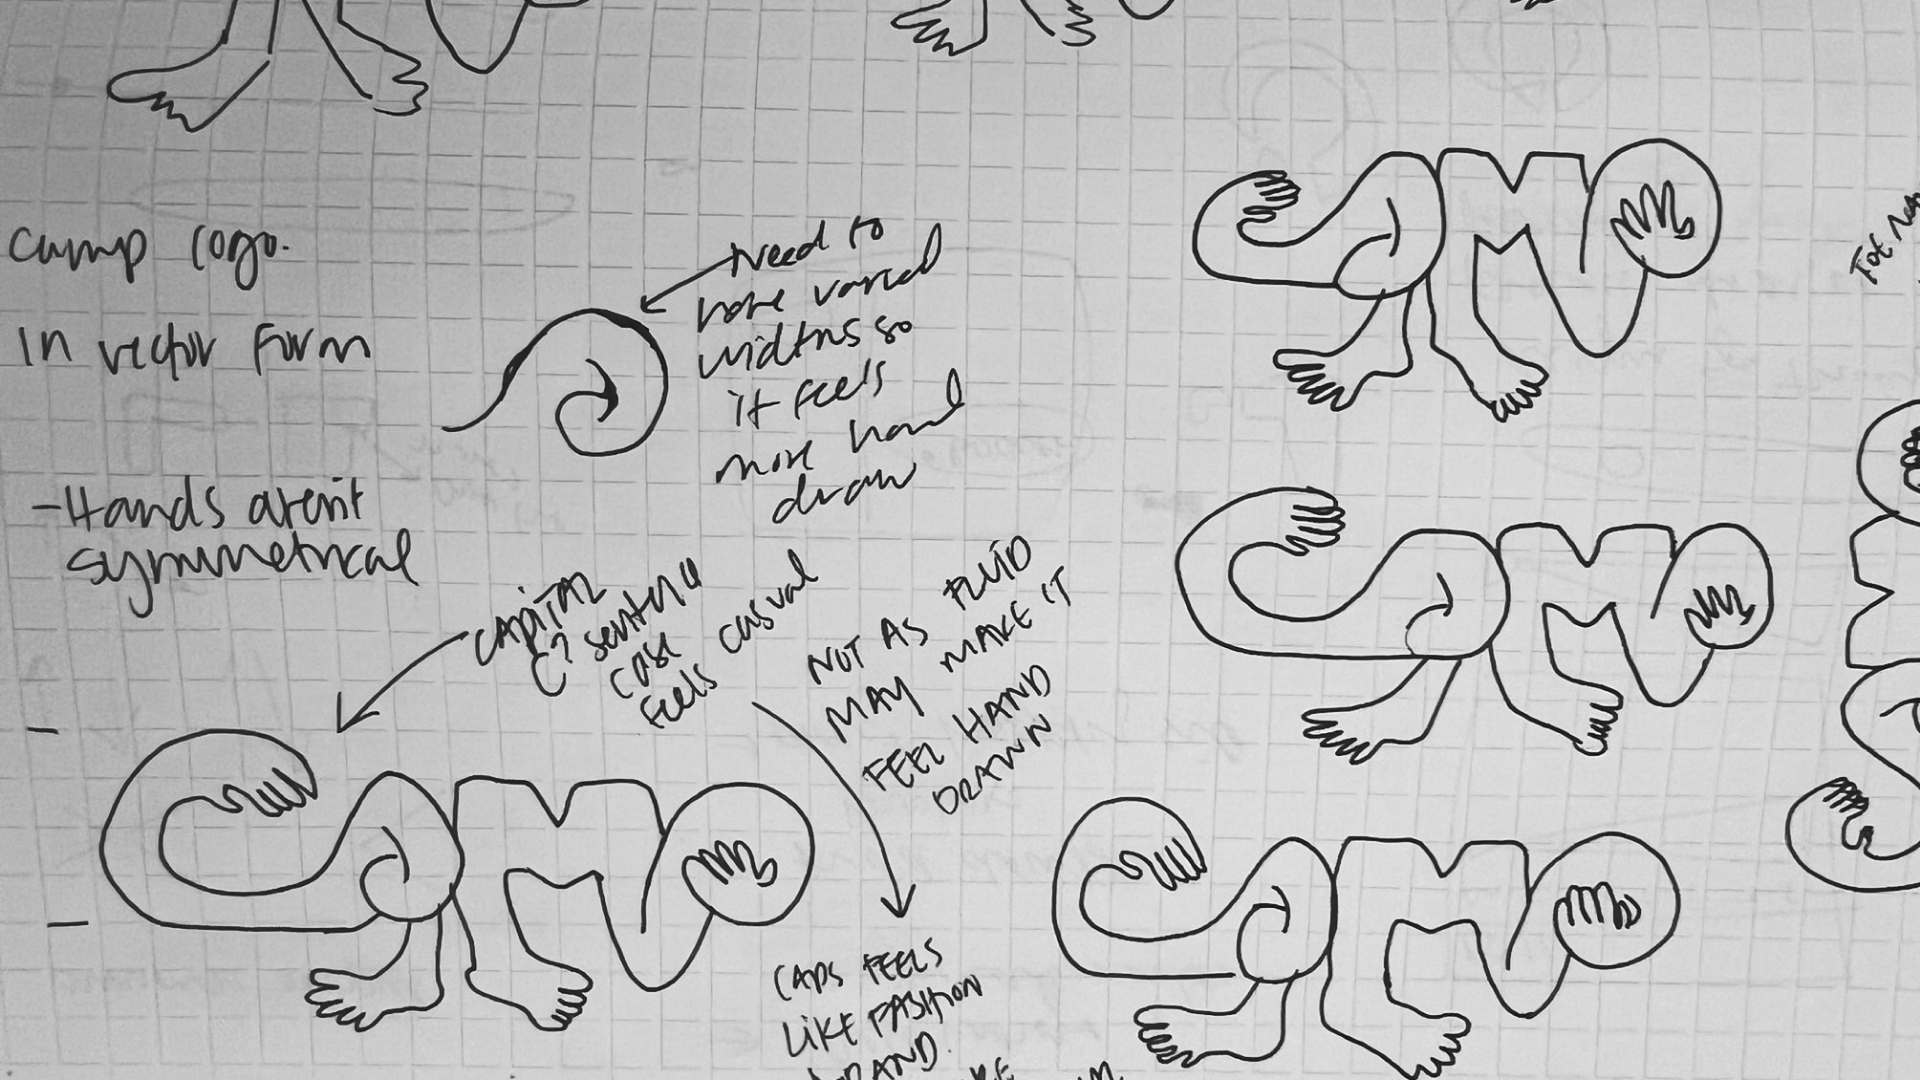 Camp logo.
In vector form
- Hands aren't
symmetrical
Need to
have varied
widths so
it feels
more hand
draw
CAPITAL
C? sentence
case
feels casual
NOT AS FLUID
MAY MAKE IT
FEEL HAND
DRAWN
CAPS FEELS
LIKE FASHION
BRAND.